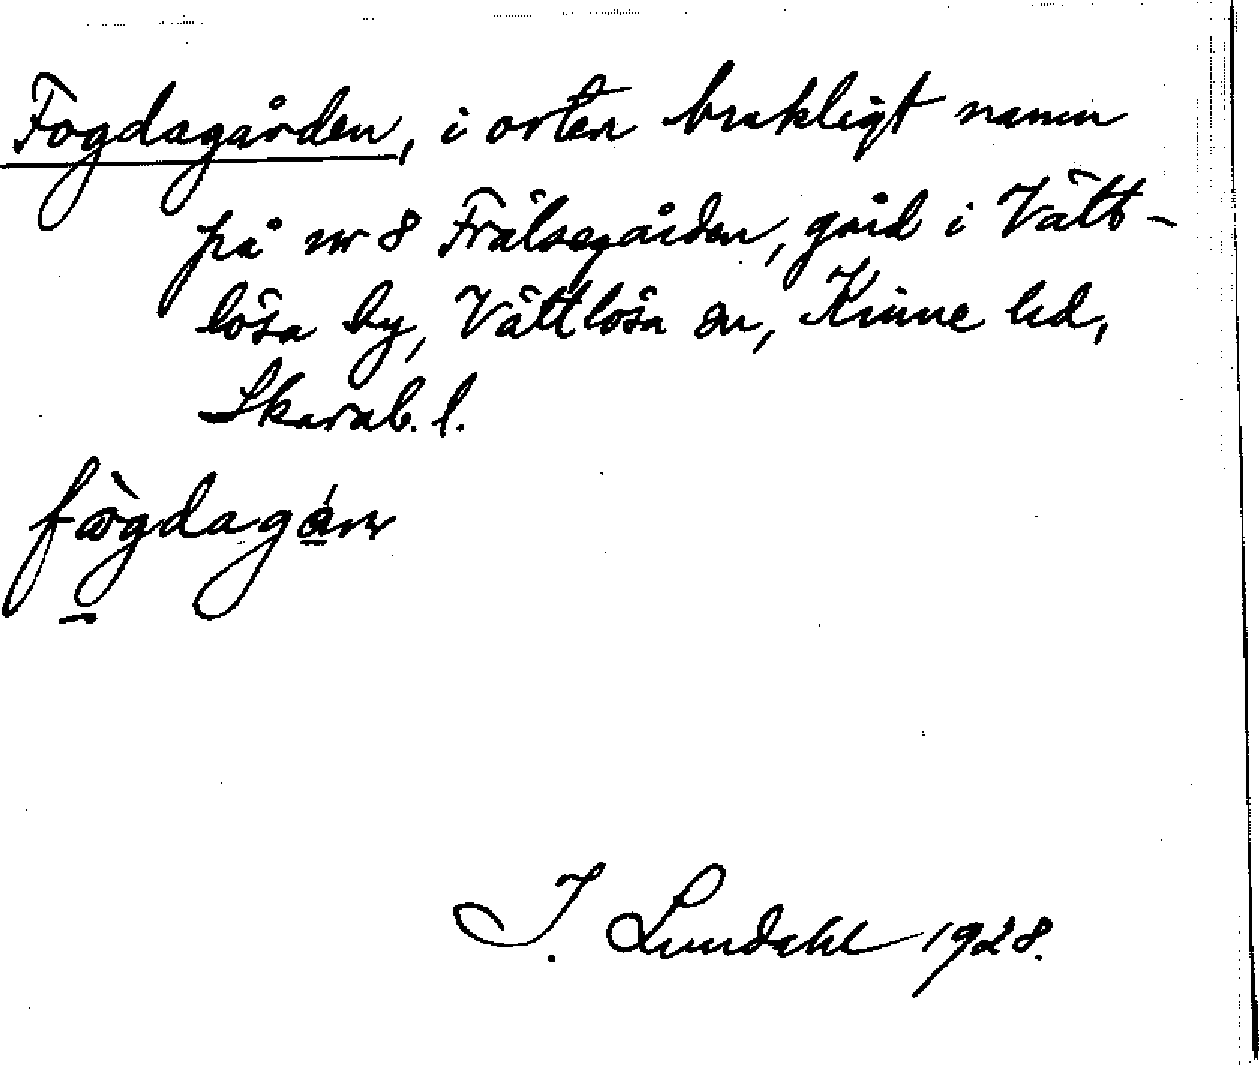 Fogdagården, i orten brukligt namn
på nr 8 Frälsegården, gård i Vätt-
lösa by, Vättlösa sn, Kinne hd,
Skarab. l.
J. Lundahl 1928.